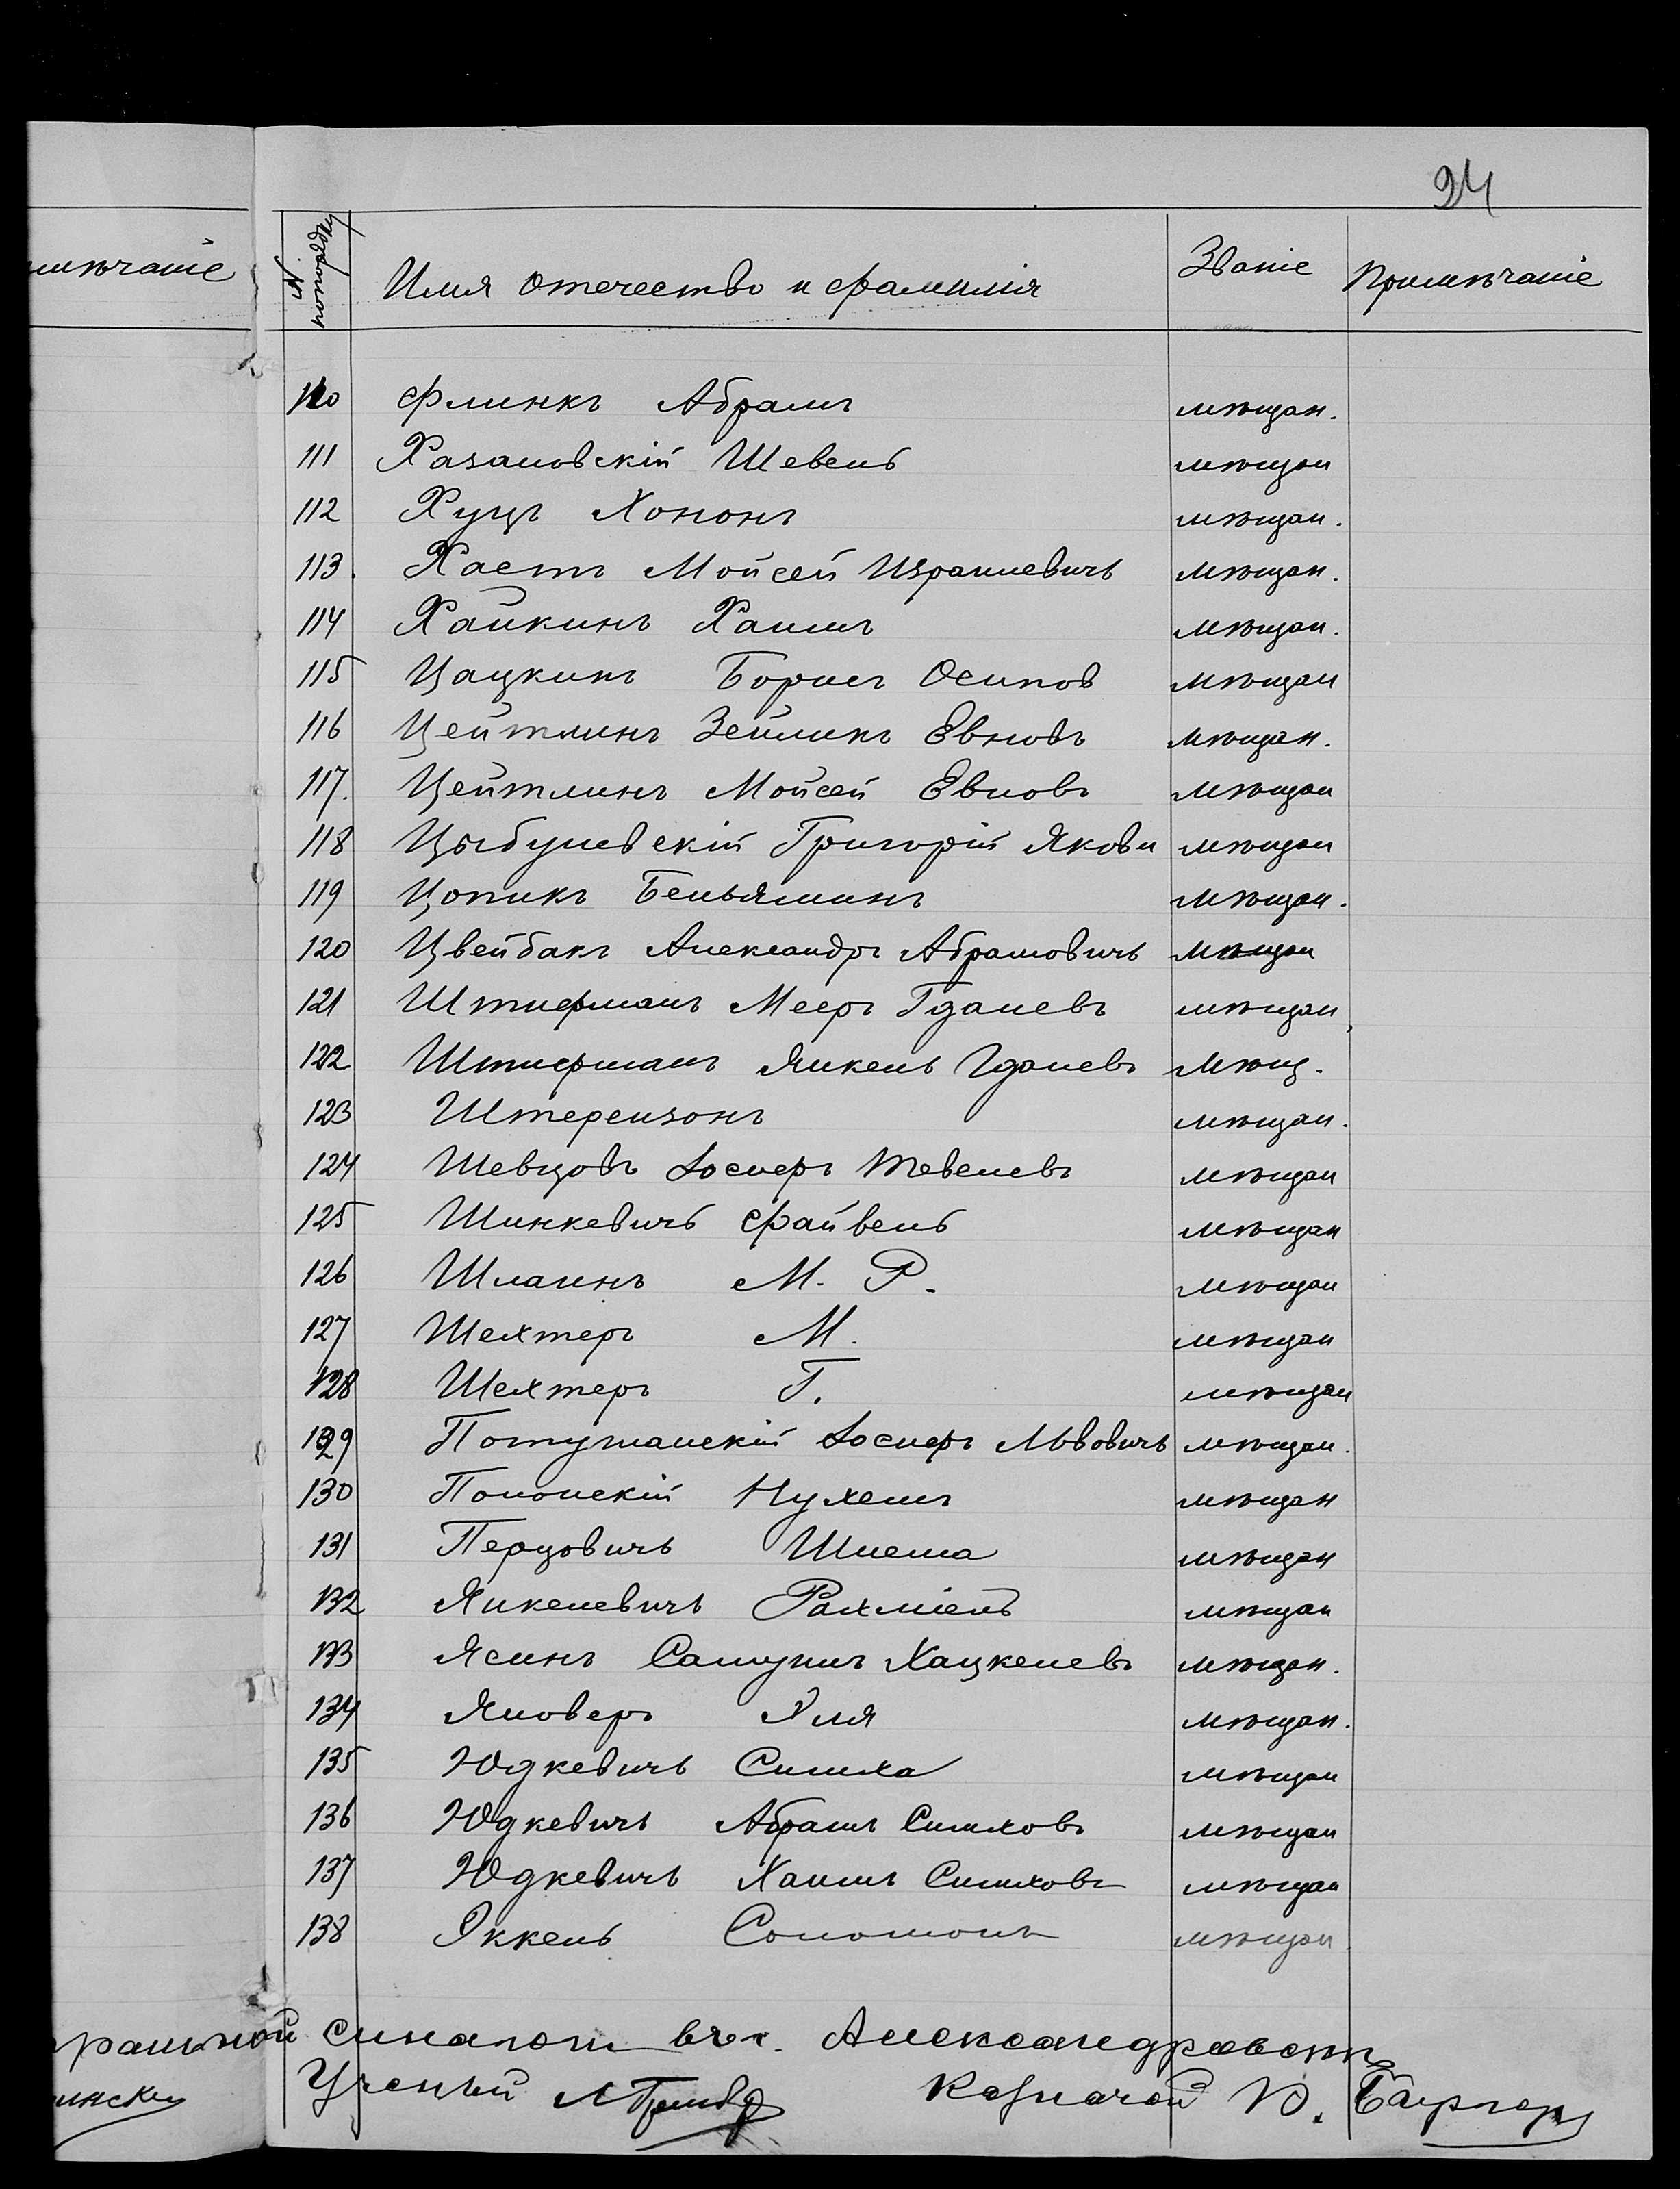 24
мѣчаніе
№ по порядку Имя отечество и фамилія Званіе Примѣчаніе
110 Флинкъ Абрамъ мѣщан.
111 Хазановскій Шевель мѣщан
112 Хуцъ Хононъ мѣщан.
113. Хастъ Мойсей Израилевичъ мѣщан.
114 Хайкинъ Хаимъ мѣщан.
115 Цацкинъ Борисъ Осипов мѣщан
116 Цейтлинъ Зейликъ Евновъ мѣщан.
117. Цейтлинъ Мойсей Евновъ мѣщан
118 Цыбулевскій Григорій Якови мѣщан
119 Цопикъ Беньяминъ мѣщан.
120 Цвейбакъ Александръ Абрамовичъ мѣщан
121 Штиферманъ Мееръ Гдалевъ мѣщан
122 Штиферманъ Янкель Гдалевъ мѣщ.
123 Штерензонъ мѣщан.
124 Шевцовъ Іосифъ Тевелевъ мѣщан
125 Шинкевичъ Файвель мѣщан
126 Шлаинъ М. Р. мѣщан
127 Шехтеръ М. мѣщан
128 Шехтеръ Г. мѣщан
129 Потушанскій Іосифъ Львовичъ мѣщан.
130 Полонскій Нухемъ мѣщан
131 Перцовичъ Шлема мѣщан
132 Янкелевичъ Рахміель мѣщан
133 Ясинъ Самуилъ Хацкелевъ мѣщан.
134 Яноверъ Эля мѣщан.
135 Юдкевичъ Симха мѣщан
136 Юдкевичъ Абрамъ Симховъ мѣщан
137 Юдкевичъ Хаимъ Симховъ мѣщан
138 Эккель Соломонъ мѣщан
ральной синагоги въ г. Александровскѣ
Ученый Казначей Ю.